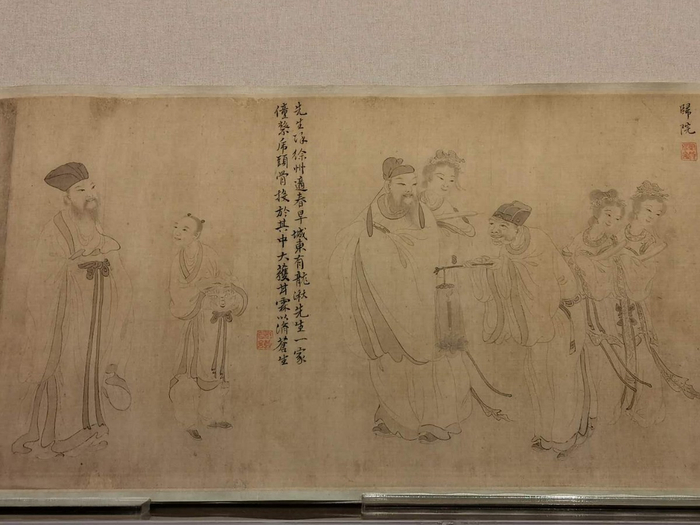 歸院
先生球徐州適春旱城東有龍湫先生一家
僮繫虎頭骨投於其中大獲甘霖以濟蒼生